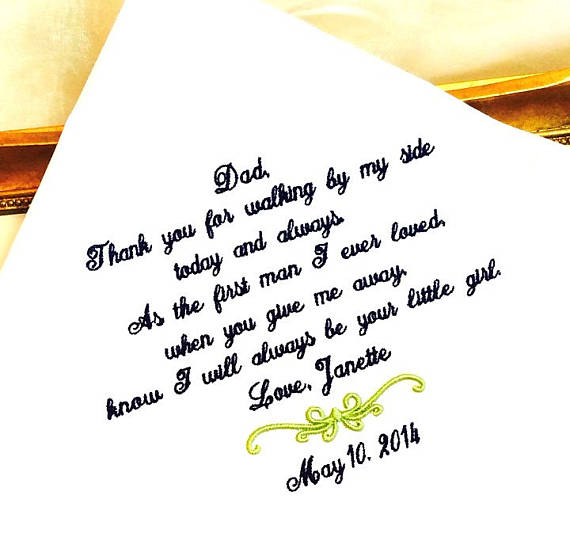 Dad,
Thank you for walking by my side
today and always.
As the first man I ever loved,
when you give me away,
know I will always be your little girl.
Love, Janette
May 10, 2014